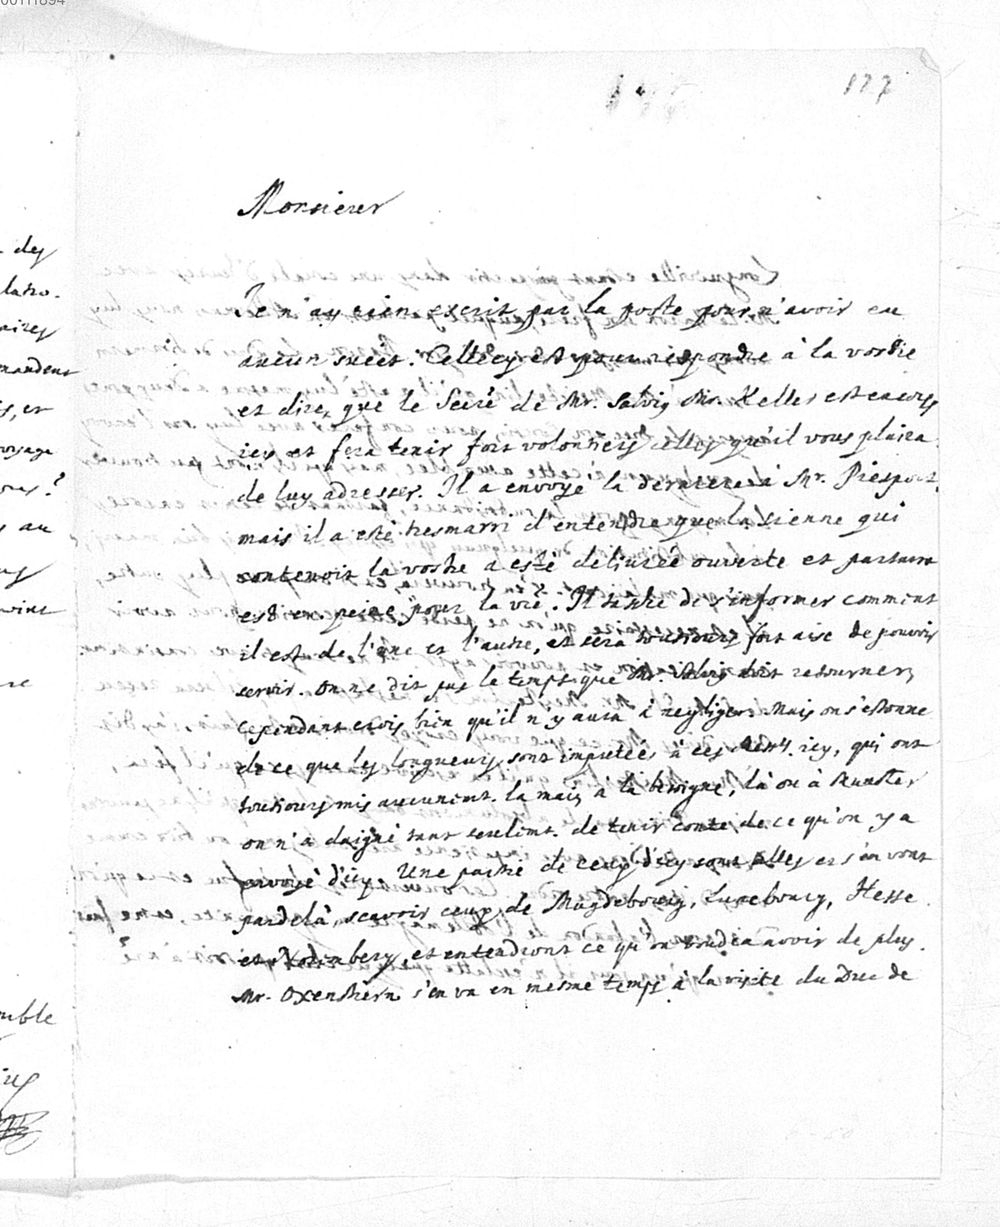 00111894
127
Monsieur
Je n'ay rien escrit par la poste pour n'avoir eu
aucun sucet. Cellecy est pour respondre à la vostre
et dire, que le Secre de Mr. Salvis Mr. Keller est encores
icy et fera tenir fort volontiers celles qu'il vous plaira
de luy adresser. Il a envoyé la derniere à Mr. Piesport,
mais il a esté hesmarri d'entendre que la sienne qui
contenoit la vostre a esté delivrée ouverte et partant
est en peine pour la vie. Il tasche de s'informer comment
il est de l'une et l'autre, et sera tousiours fort aise de pouvoir
servir. On ne dit pas le temps que Mr. Salvis doit retourner,
cependant crois bien qu'il n'y aura à negliger. Mais on s'estonne
de ce que les longueurs sont imputées à ces Mess. icy, qui ont
tousiours mis aucunemt. la main à la besogne, là ou à Munster
on n'a daigné tant seulemt. de tenir conte de ce qu'on y a
envoyé d'icy. Une partie de ceux d'icy sont alles et s'en vont
par delà, scavoir ceux de Magdebourg, Lunebourg, Hesse
et Wirtenberg, et entendront ce qu'on voudra avoir de plus.
Mr. Oxenstiern s'en va en mesme temps à la visite du Duc de
des
mandent
is, et
voyage
vous?
s au
vint
re
mble